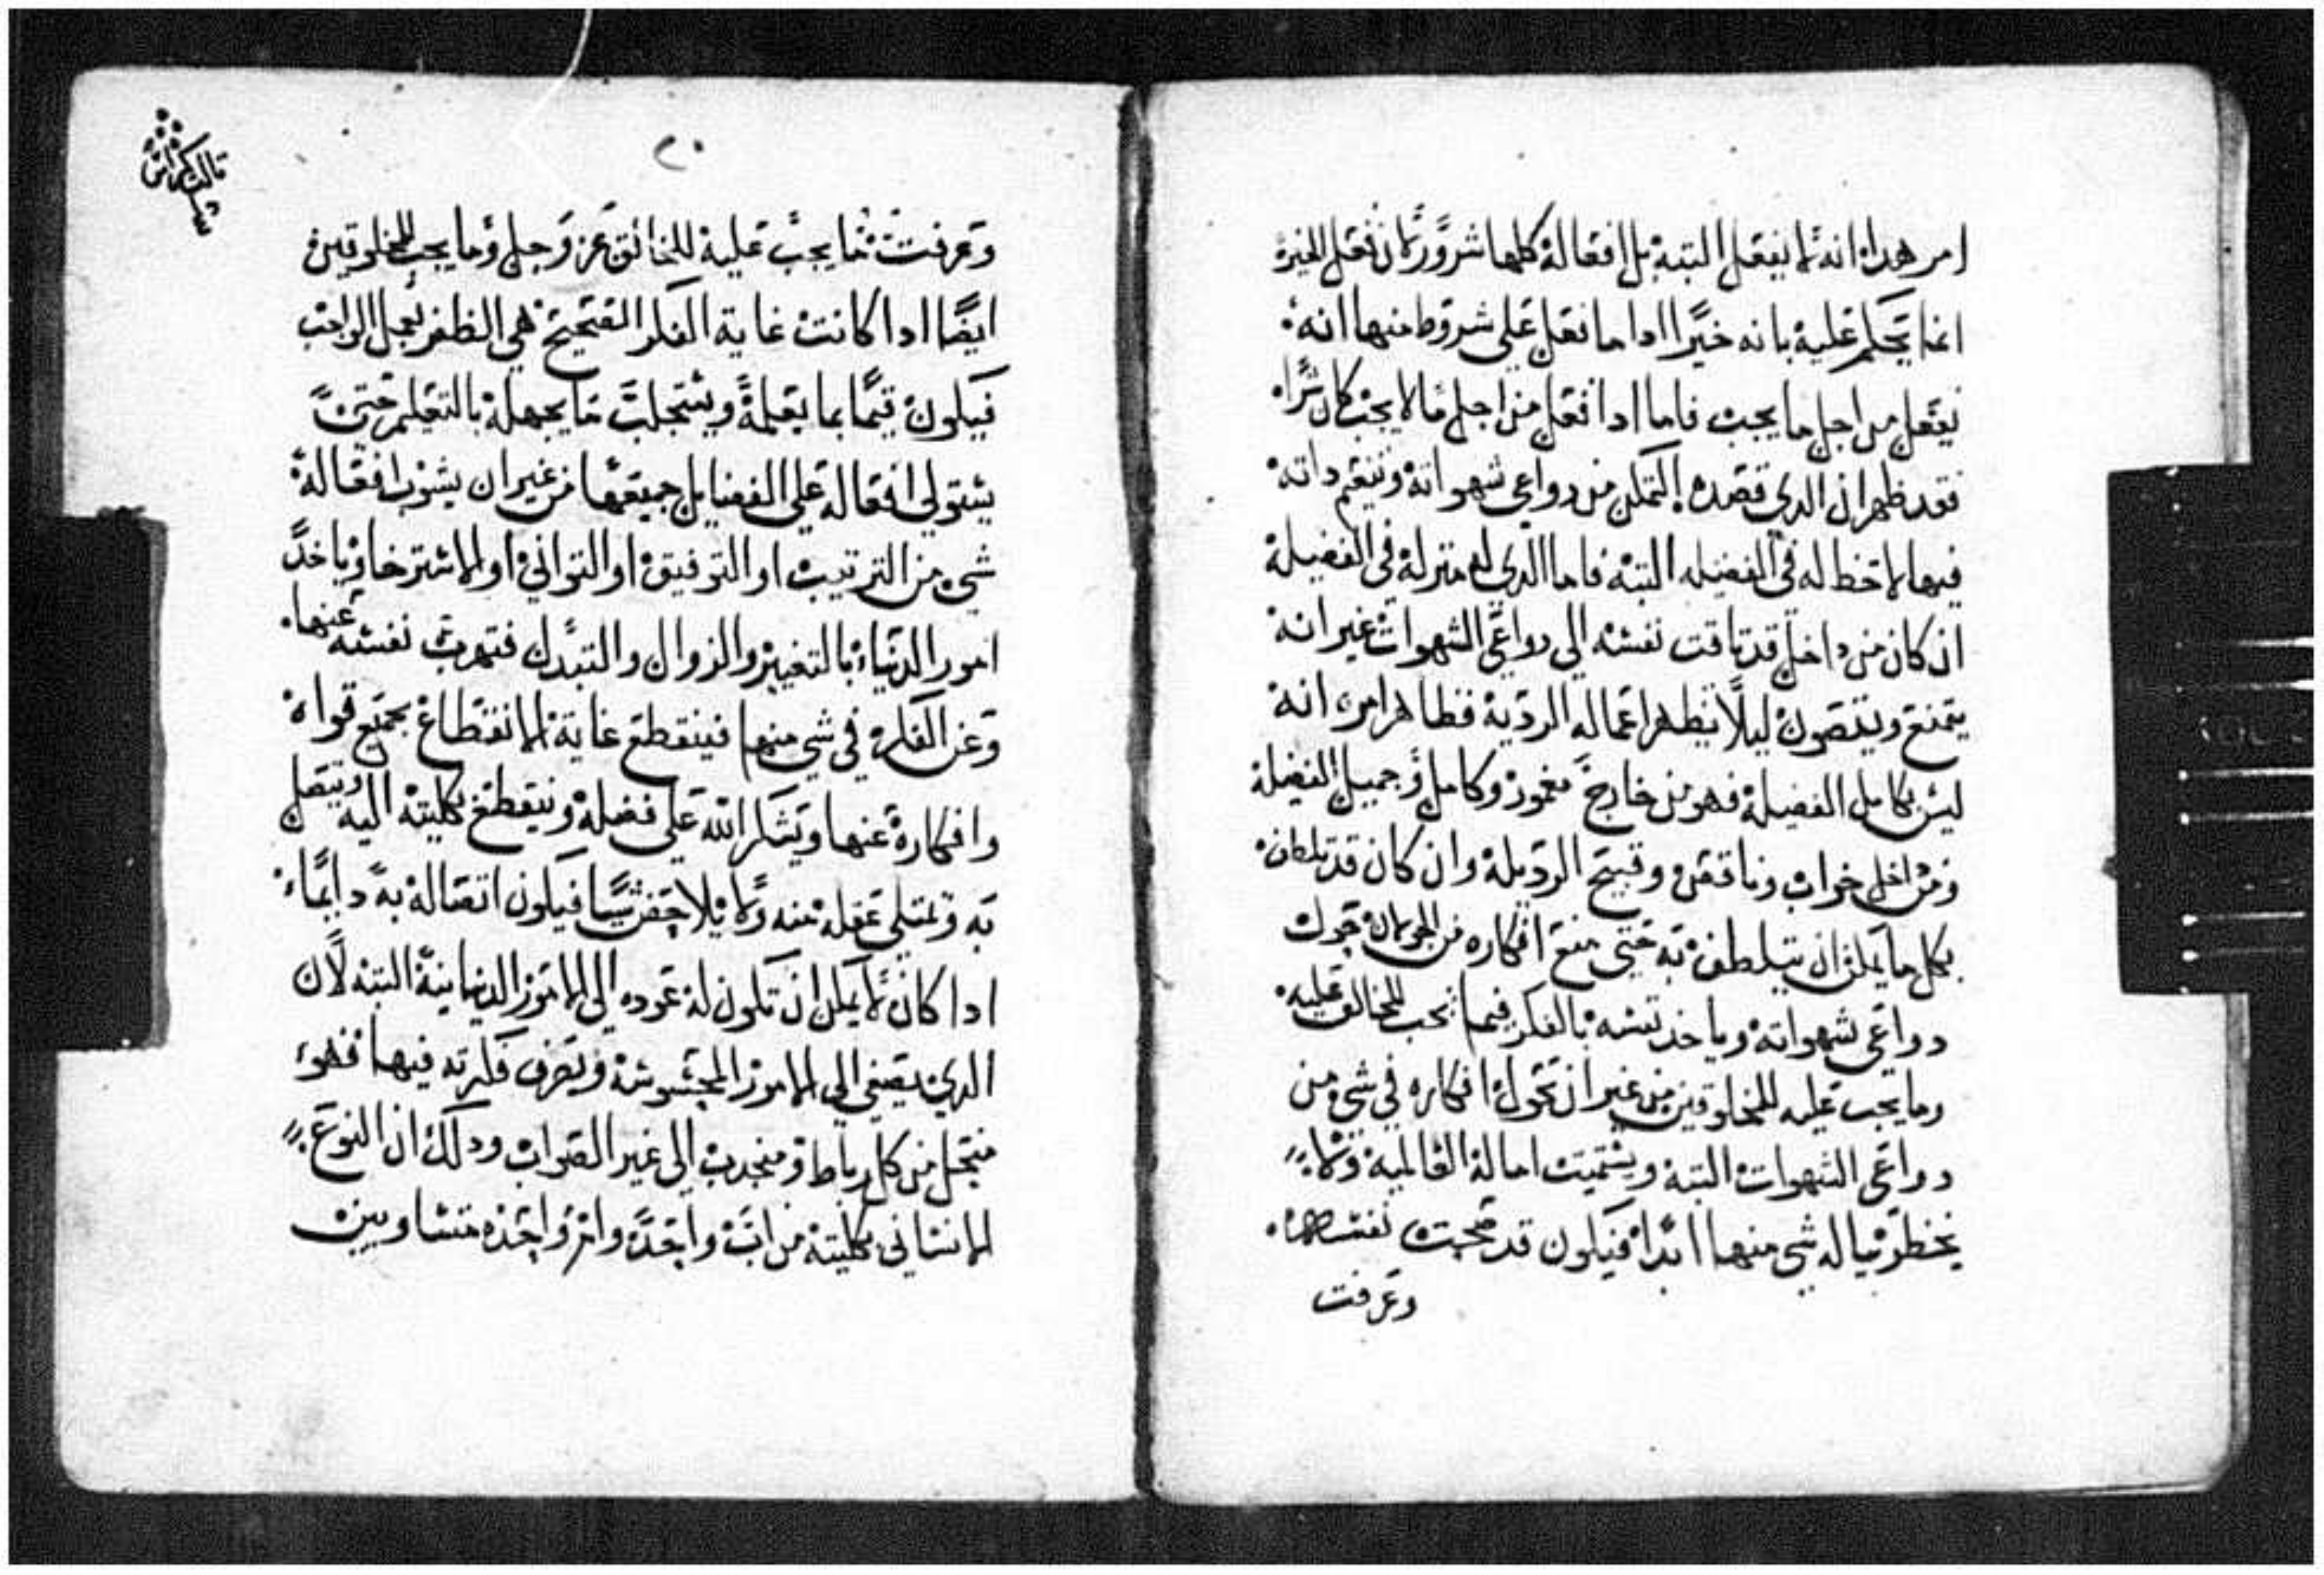 امر هدا انه لا يفعل البته بل افعاله كلها شرور لان فعل الخير
انما يحكم عليه بانه خيرا ادا ما فعل علي شروط منها انه
يفعل من اجل ما يجب فاما ادا فعل من اجل ما لا يجب كان شرا
فقد ظهر ان الدي قصده التمكن من دواعي شهواته وتنعم داته
فيها لا حظ له في الفضيله البته فاما الدي له منزله في الفضيلة
ان كان من داخل قد تاقت نفسه الي دواعي الشهوات غير انه
يمتنع ويتصون ليلا يظهر اعماله الردية فظاهر امره انه
ليس بكامل الفضيلة فهو من خارج معمور وكامل وجميل الفضيلة
ومن داخل خراب وناقص وقبيح الرديلة وان كان قد تلطف
بكل ما يمكن ان يتلطف به حتي منع افكاره من الجولان حول
دواعي شهواته وياخد نفسه بالفكر فيما يجب للخالق عليه
وما يجب عليه للمخلوقين من غير ان تجول افكاره في شي من
دواعي الشهوات البته ويستميت اماله العالمية ولا
يخطر بباله شي منها ابدا فيكون قد صحت نفسه
وعرفت
٢٠
وعرفت ما يجب عليه للخالق عز وجل وما يجب للمخلوقين
ايضا ادا كانت غاية الفكر الصحيح هي الظفر بعمل الواجب
فيكون قيما بما يعلمه ويستجلب ما يجهله بالتعلم حتي
يستولي افعاله علي الفضايل جميعها من غير ان يشوب افعاله
شي من الترتيب او التوفيق او التواني او الاسترخا وياخد
امور الدنيا بالتغيير والزوال والتبدل فتهرب نفسه عنها
وعن الفكره في شي منها فينقطع غاية الانقطاع بجميع قواه
وافكاره عنها ويشكر الله علي فضله وينقطع بكليته اليه ويتصل
به ويمتلي عقله منه ولا يلاحظ شيا فيكون اتصاله به دايما
ادا كان لا يمكن ان تكون له عوده الي الامور الدنيانية البته لان
الدي يصغي الي الامور المحسوسة ويصرف فكرته فيها فهو
منحل من كل رباط ومنجدب الي غير الصواب ودلك ان النوع
الانساني بكليته من اب واحد وام واحده متساويين